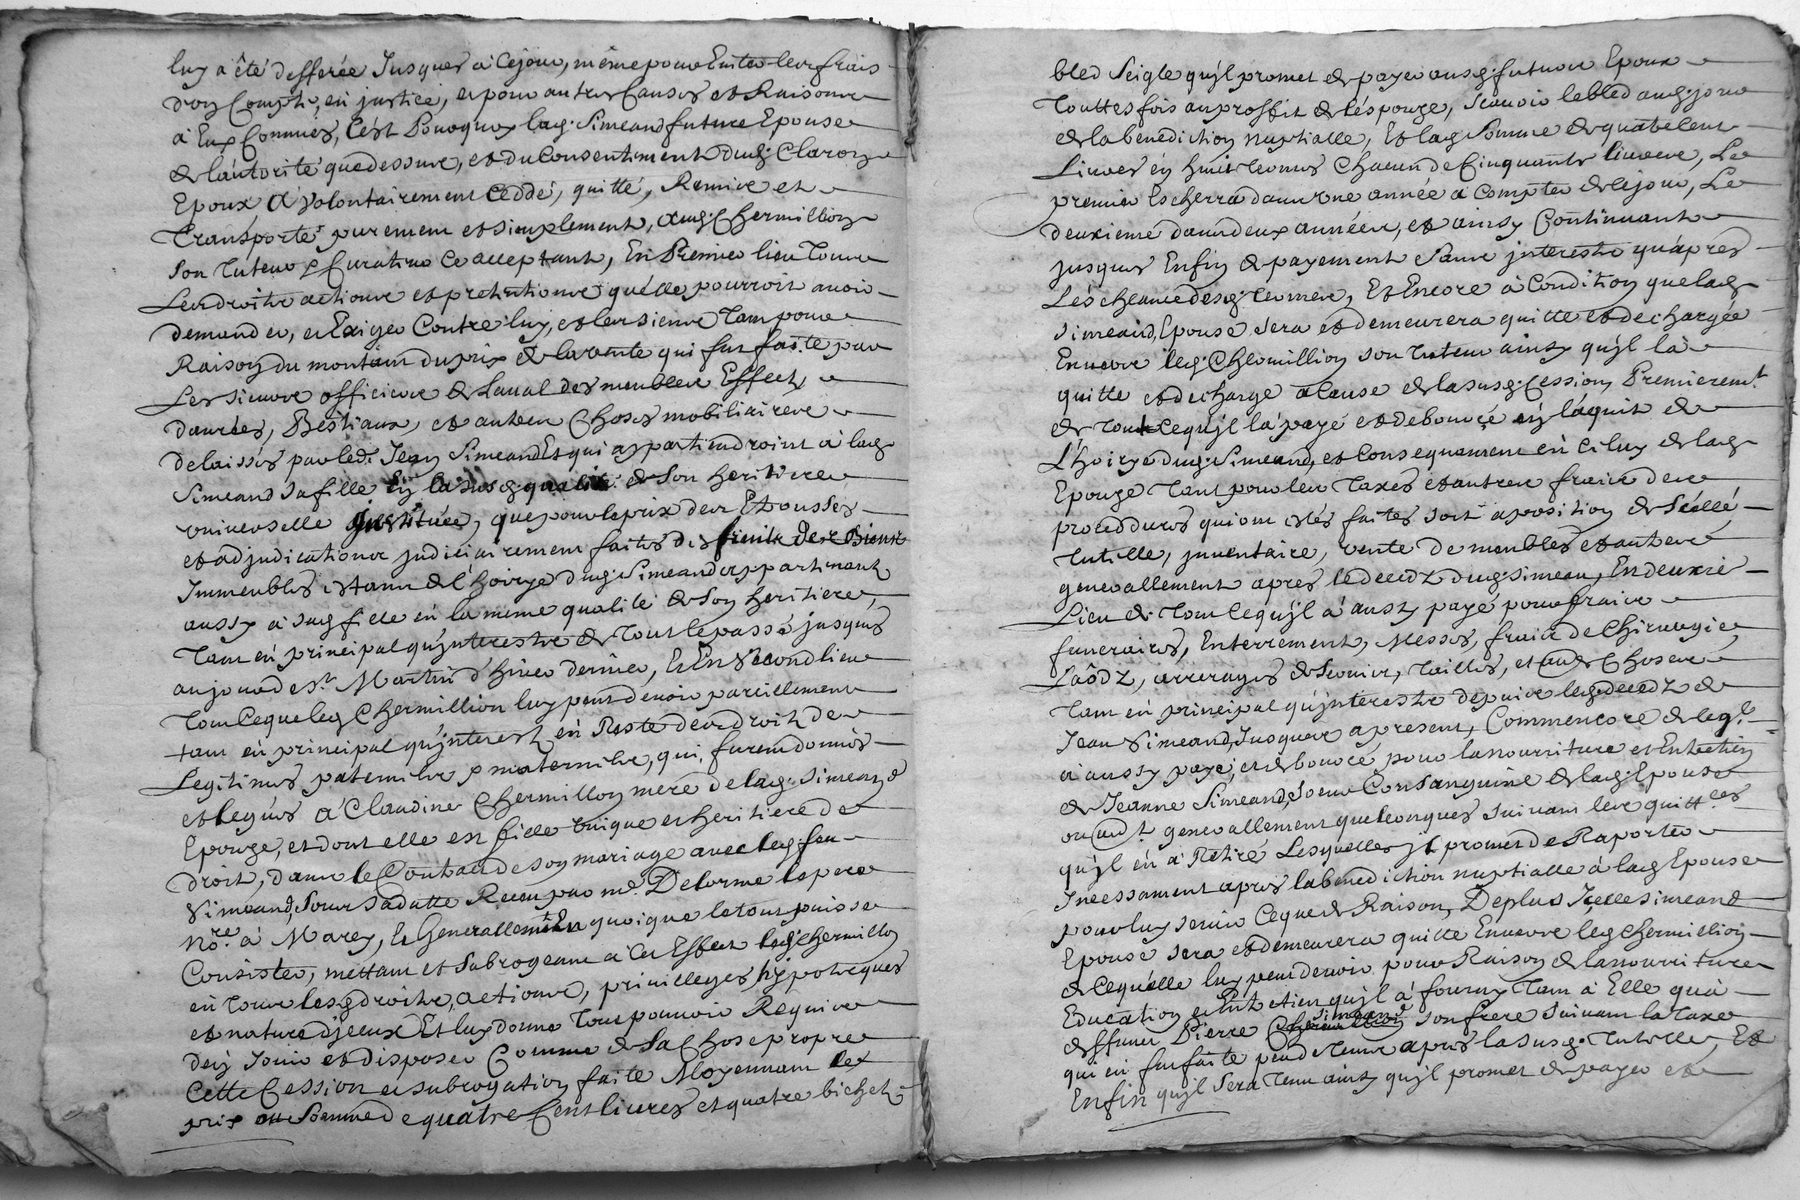 luy a êté defferée Jusques à Cejour, même pour Eviter leur frais
d'un Compte, en justice, et pour autres Causes et Raisons
à Eux Connues, C'est Pourquoy lad. Simeand future Epouse
de l'autorité que dessus, et du Consentiment dud. Claron
Epoux, A volontairement Ceddé, quitté, Remire et
Transporté purement et simplement, aud. Chermillion
son Tuteur & Curatiur Ce acceptant, En Premier lieu Tous
Les droits actions et pretentions qu'elle pourroit avoir
demander, et Exiger Contre luy, et les siens Tam pour
Raison du montam du prix de la vente qui fut faite par
Les sieurs officiers de Laval des meubles Effects,
danrées, Bestiaux, et autres Choses mobiliaires
delaissés par led. Jean Simeand Et qui appartiendroint à lad.
Simeand sa fille En la susd. qualité de Son heritiere
universelle Instituée, que pour le prix des Etrousses
et adjudications judiciairement faites des fruits des Biens
Immeubles estans de l'hoirye dud. Simeand appartinants
aussy a sad. fille en la meme qualité de Son heritiere,
Tam en principal qu'interestre de Tout le passé jusques
aujourd. St. Martin d'hiver dernier, Et En Second lieu
Tout Ceque led. Chermillion luy peut devoir pareillement
tam en principal qu'interest en Reste des droits de
Legitimes paternilre & maternilre, qui furem donnés
et legués à Claudine Chermillon mere de lad. Simeand
Epouze, et dont elle est fille unique et heritiere de
droit, dans le Contract de son mariage avec led. feu
Simeand, Sous sa datte Receu par me. Delorme le pere
Nore. à Marey, Et Generallement En quoique le tout puisse
Consister, mettam et Subrogeam à Cet Effect led. Chermillon
en Tous lesd. droits, actions, privilleges hypotecques
et nature d'jceux Et luy donne Tout pouvoir Requis
d'en Jouir et disposer Comme de Sa Chose propre
Cette Cession et subrogation faite Moyennam les
prix et Somme de quatre Cent livres et quatre bichets
bled Seigle qu'jl promet de payer ausd. futurs Epoux
Touttesfois au proffit de l'espouze, scavoir le bled au jour
de la benediction nuptialle, Et lad. Somme de quatre Cent
Livres en huit Termes Chacun de Cinquante livres, Le
premier Escherra dans une année à Compter de Cejour, Le
deuxieme dans deux années, et ainsy Continuant
jusques Enfin de payement sans jnterestre qu'apres
L'escheance desd. Termes, Et Encore à Condition que lad.
Simeand, Epouse sera et demeurera quitte et dechargée
Envers led. Chermillion son Tuteur ainsy qu'jl la
quitte et decharge a Cause de la susd. Cession, Premieremt.
de Tout Cequ'jl l'a payé et debourcé en l'aquit de
L'hoirye dud. Simeand, et Consequament en Celuy de lad.
Epouze Tant pour les Taxes et autres frais des
procedures qui ont estés faites soit aposition de Scellé,
Tutelle, jnventaire, vente de meubles et autres
generallement apres le decedz dud. Simeand, En deuxie
Lieu de Tout Cequ'jl a aussy payé pour frais
funeraires, Enterrement, Messes, frais de Chirurgie,
Laôdz, arrerages de Servis, Tailles, et autres Choses
Tam en principal qu'jnterestre depuis led. decedz de
Jean Simeand, Jusques apresent, Comme encore de Cequ'jl
a aussy payé, et debourcé pour la nourriture et Entretien
de Jeanne Simeand, Soeur Consanguine de lad. Epouse
ou autrt. generallement quelconques suivam les quittces
qu'jl en a Retiré Lesquelles jl promet de Raporter
Incessament apres la benediction nuptialle à lad. Epouse
pour luy servir Ceque de Raison, De plus Icelle Simeand
Epouse sera et demeurera quitte Envers led. Chermillion
de Cequ'elle luy peut devoir pour Raison de la nourriture
Education et Entretien qu'jl a fourny Tam à Elle qu'à
deffunct Pierre Simeand son frere Suivam la Taxe
qui en fut faite peu de Temps apres la susd. Tutelle, Et
Enfin qu'jl Sera Tenu ainsy qu'jl promet de payer et